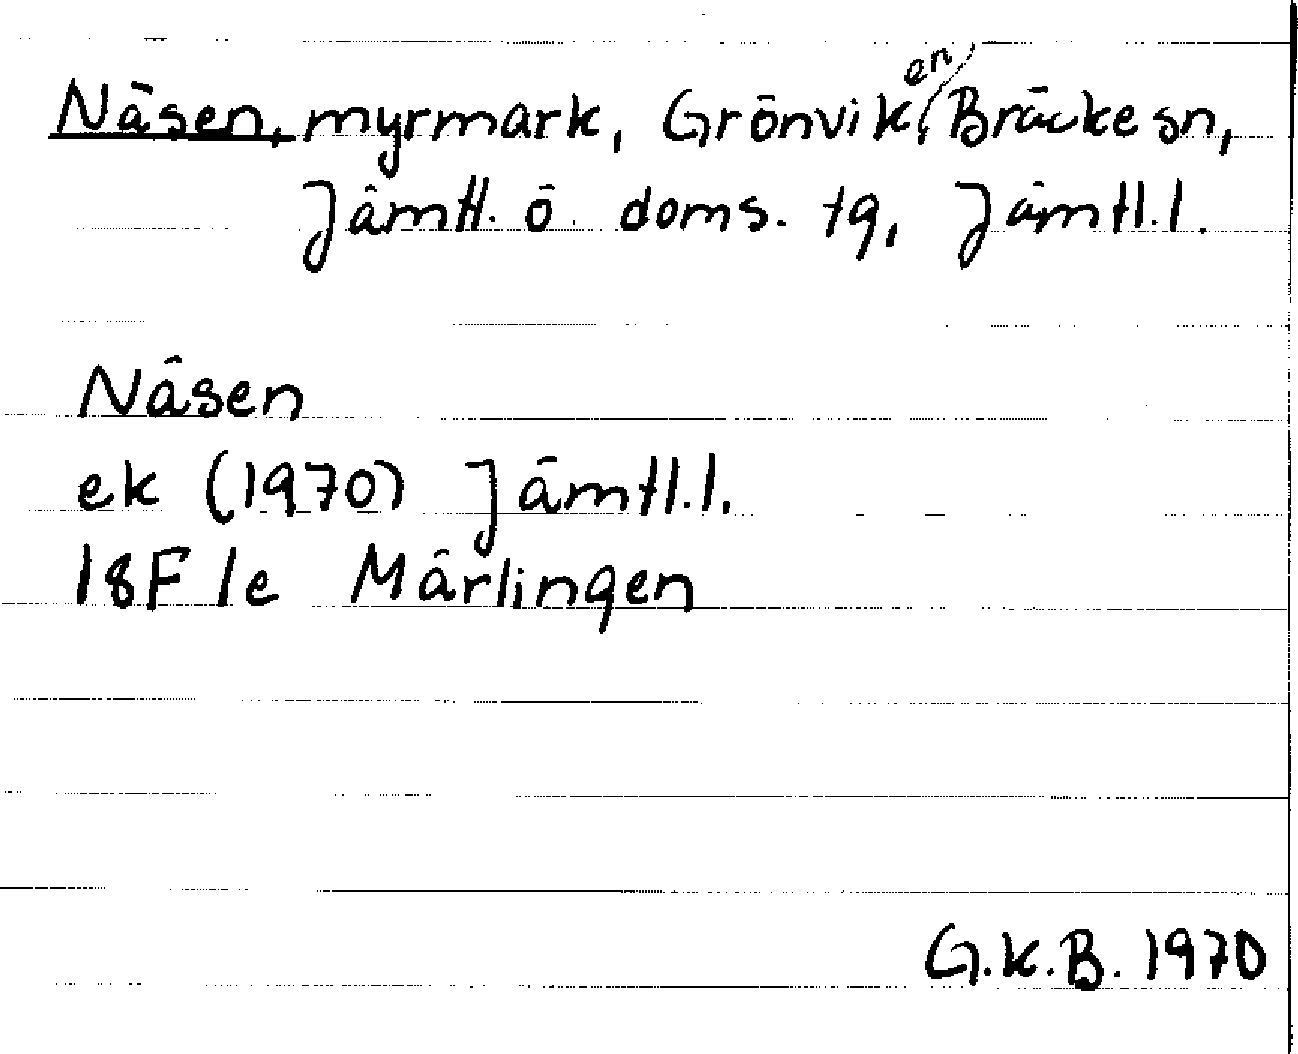 Näsen, myrmark, Grönviken, Bräcke sn,
Jämtl. ö. doms. tg, Jämtl.l.
Näsen
ek (1970) Jämtl.l.
18F 1e Märlingen
G.K.B. 1970